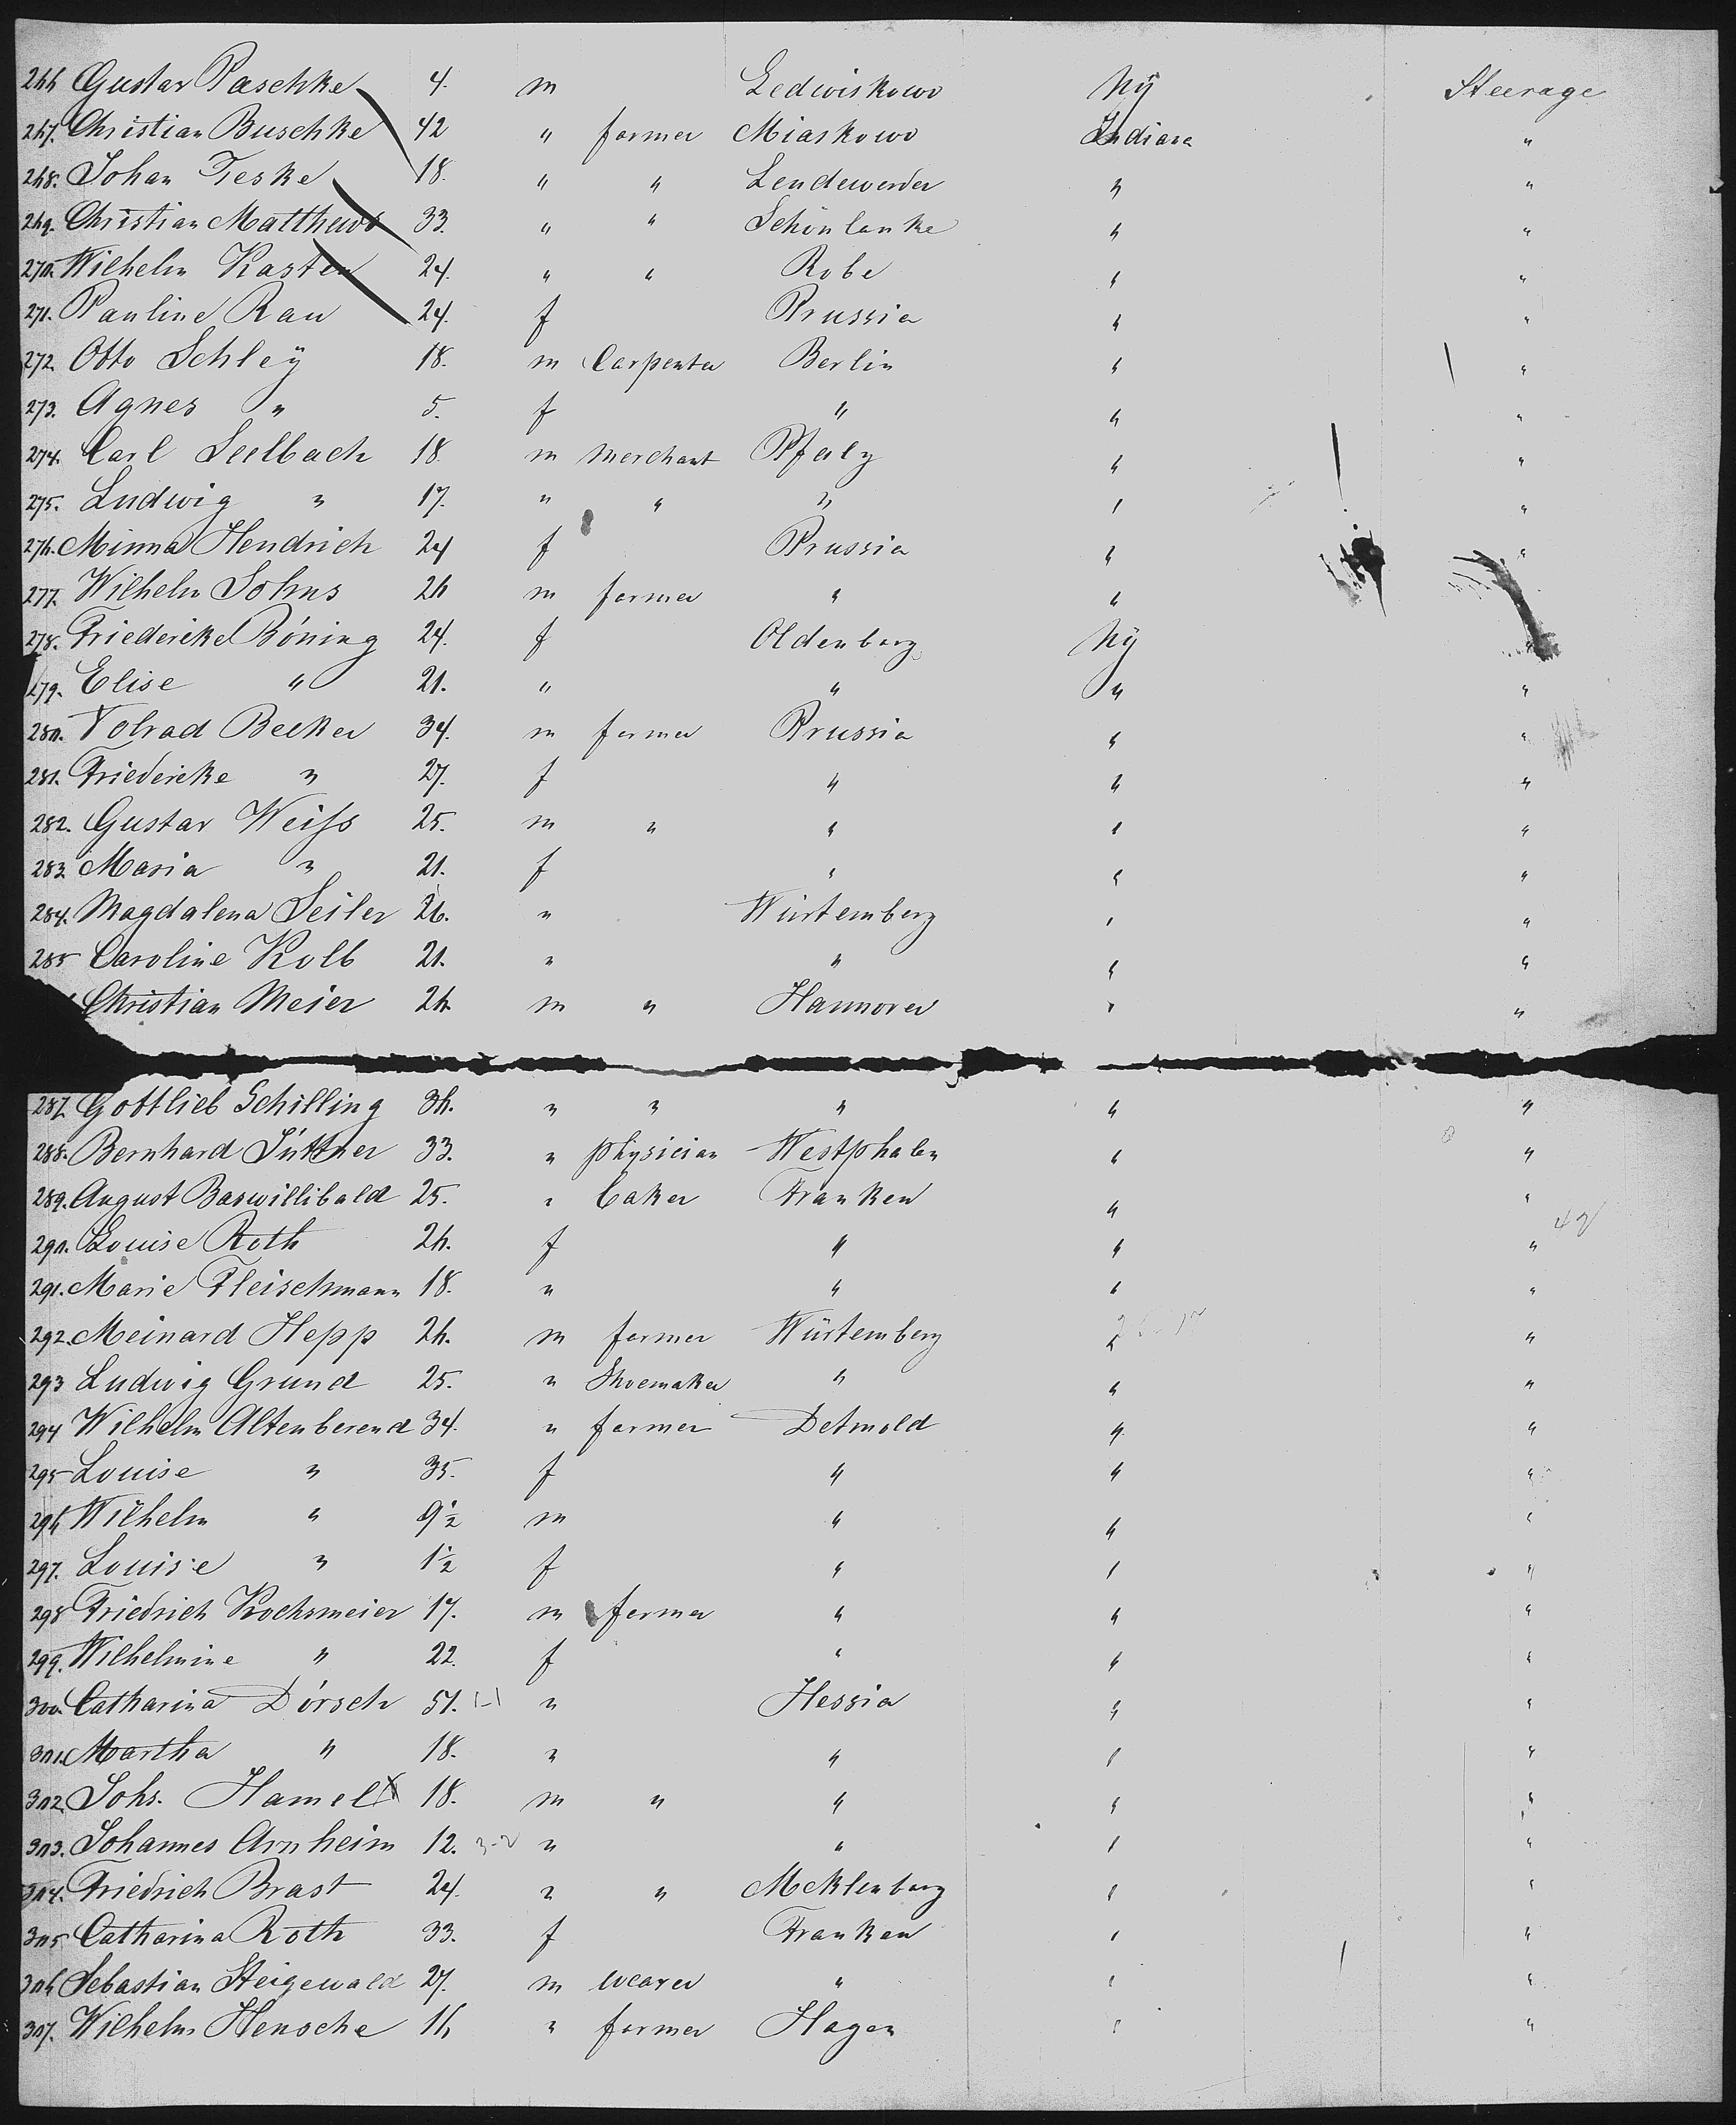 266 Gustav Paschke 4. m Ledwiskowo Ny Steerage
267. Christian Buschke 42 " farmer Miaskowo Indiana "
268. Johan Teske 18. " " Lendewerder " "
269. Christian Matthews 33. " " Schönlanke " "
270. Wilhelm Kasten 24. " " Robe " "
271. Pauline Rau 24. f Prussia " "
272. Otto Schley 18. m Carpenter Berlin " "
273. Agnes " 5. f " " "
274. Carl Seelbach 18. m Merchant Pfalz " "
275. Ludwig " 17. " " " " "
276. Minna Hendrich 24 f Prussia " "
277. Wilhelm Sohns 26 m farmer " " "
278. Friedericke Böning 24. f Oldenburg Ny "
279. Elise " 21. " " " "
280. Volrad Becker 34. m farmer Prussia " "
281. Friedericke " 27. f " " "
282. Gustav Weiss 25. m " " " "
283. Maria " 21. f " " "
284. Magdalena Seiler 26. " Würtemberg " "
285 Caroline Kolb 21. " " " "
Christian Meier 26. m " Hannover " "
287. Gottlieb Schilling 36. " " " " "
288. Bernhard Süttner 33. " physician Westphalen " "
289. August Baswillibald 25. " baker Franken " "
290. Louise Roth 26. f " " "
291. Marie Fleischmann 18. " " " "
292. Meinard Hepp 26. m farmer Würtemberg " "
293 Ludwig Grund 25. " Shoemaker " " "
294 Wilhelm Altenberend 34. " farmer Detmold " "
295 Louise " 35. f " " "
296 Wilhelm " 9½ m " " "
297. Louise " 1½ f " " "
298 Friedrich Kochsmeier 17. m farmer " " "
299. Wilhelmine " 22. f " " "
300. Catharina Dörsch 51. " Hessia " "
301. Martha " 18. " " " "
302. Johs. Hamel 18. m " " " "
303. Johannes Arnheim 12. " " " "
304. Friedrich Brast 24. " " Mcklenburg " "
305 Catharina Roth 33. f Franken " "
306 Sebastian Steigewald 27. m weaver " " "
307. Wilhelm Hensche 16 " farmer Hagen " "